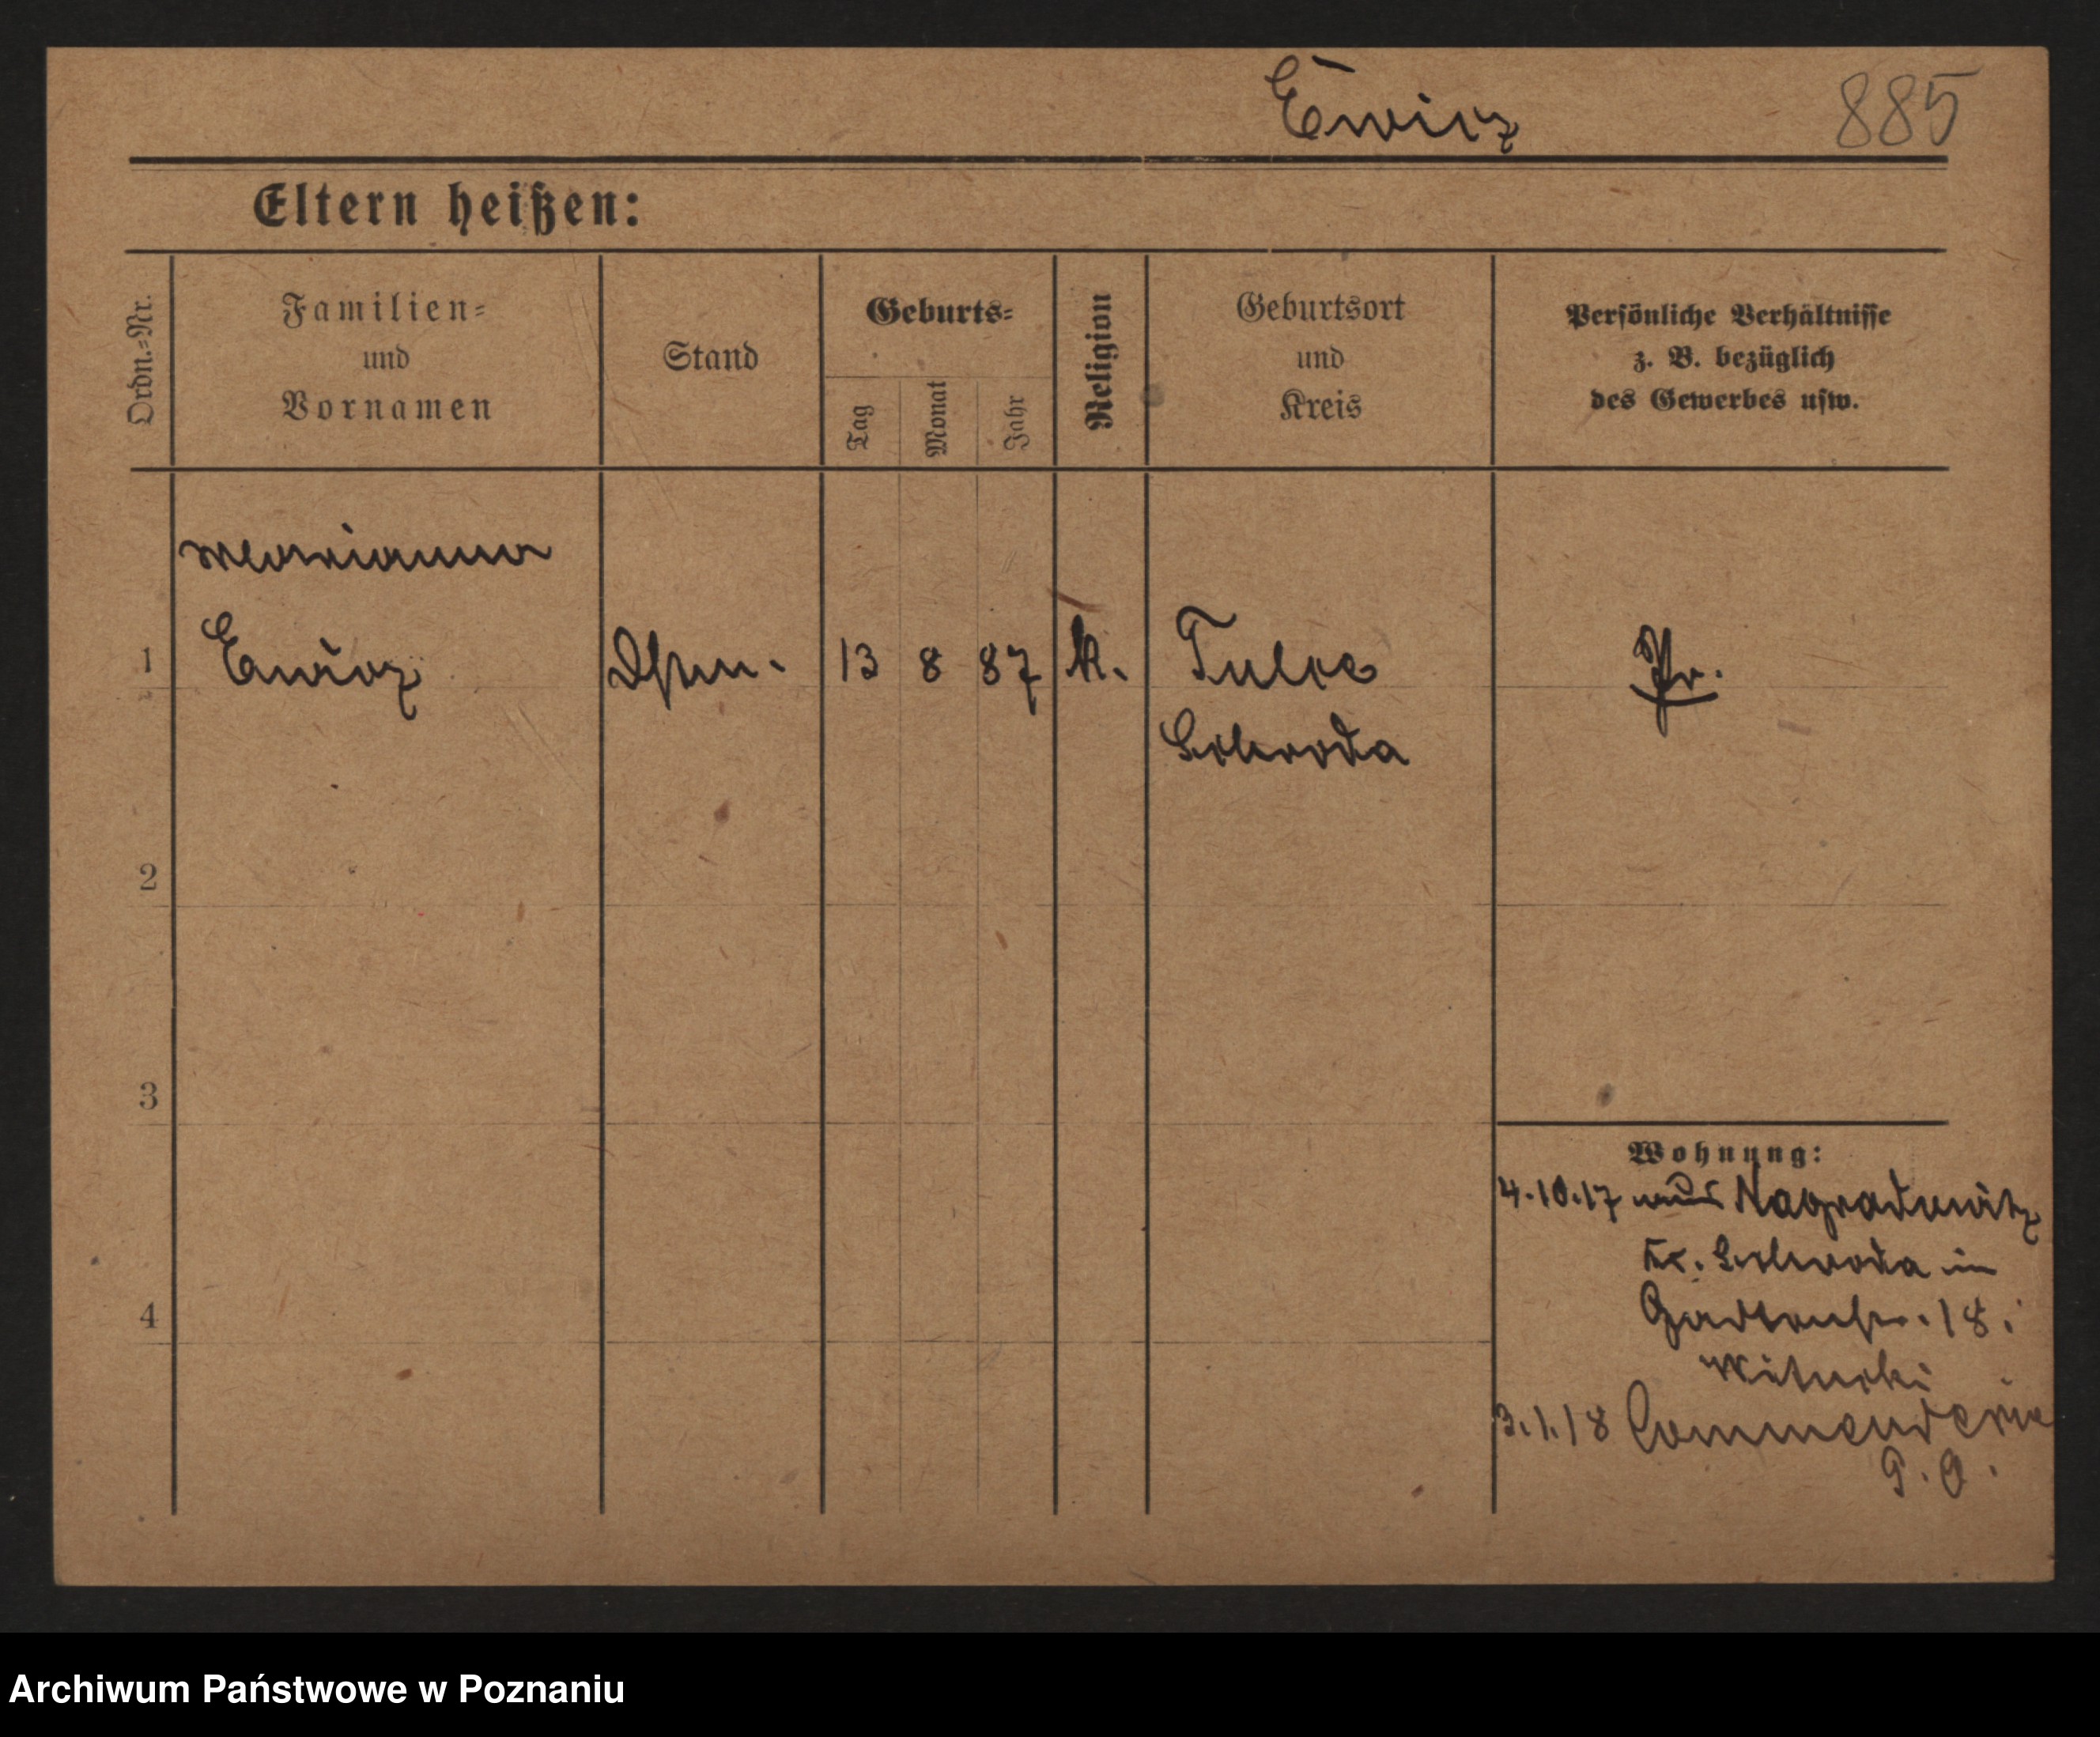 Ewicz 885
Eltern heißen:
Ordn.=Nr.
Familien=
und
Vornamen
Stand
Geburts=
Tag
Monat
Jahr
Religion
Geburtsort
und
Kreis
Persönliche Verhältnisse
z. B. bezüglich
des Gewerbes usw.
Marianna
1 Ewicz 13 8 87 k. Tulce Pr.
Schroda
2
3
4
Wohnung:
4.10.17 aus Nagradowitz
Kr. Schroda in
Gartenstr. 18.
Witucki
3.1.18 Commenderie
Archiwum Państwowe w Poznaniu